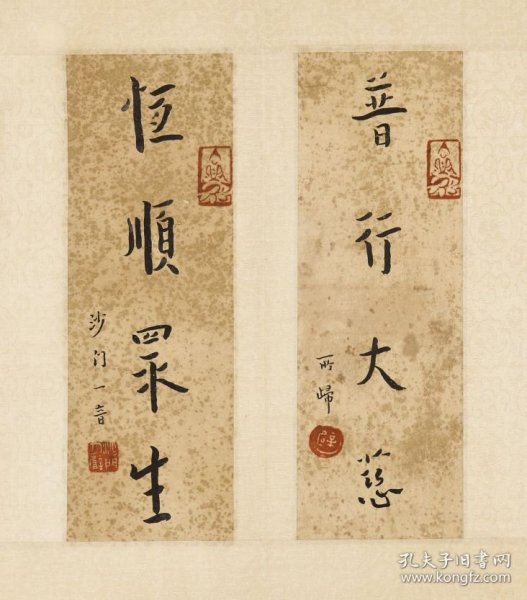 普行大慈
所歸
恆順眾生
沙门一音
孔夫子旧书网
www.kongfz.com